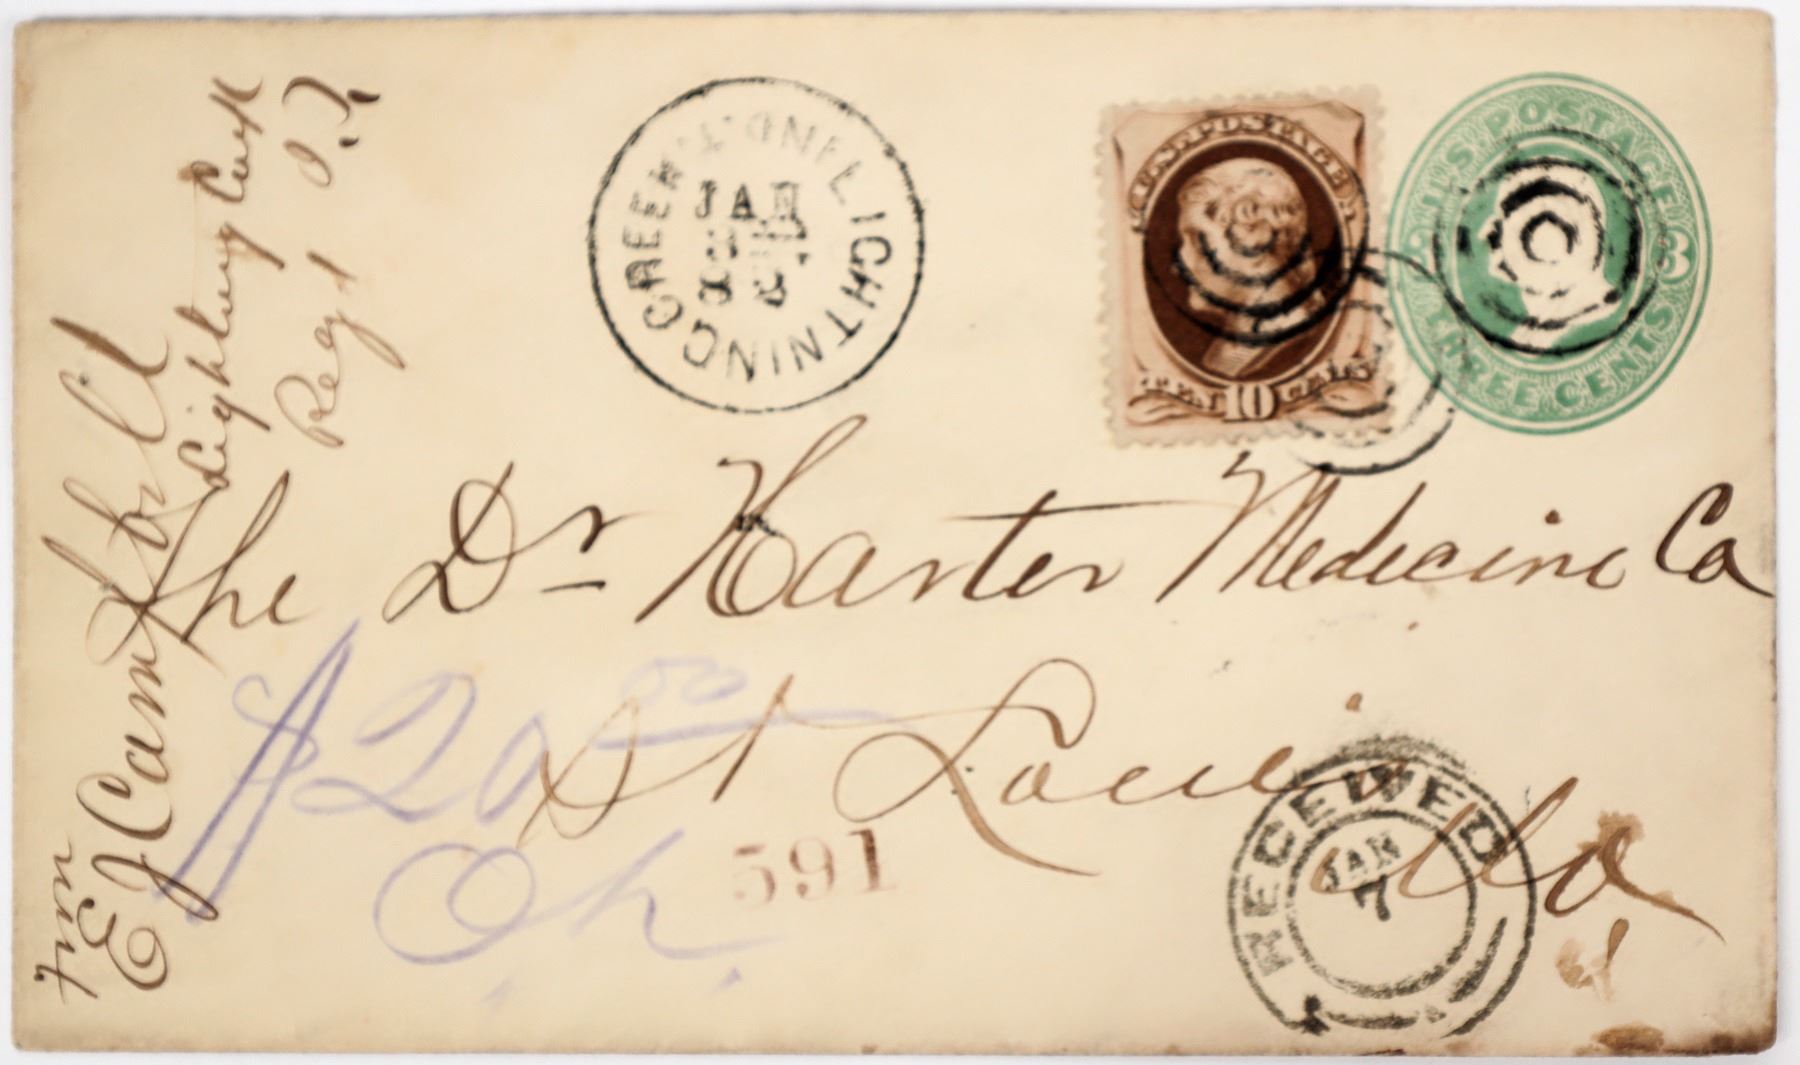 From
E J Campbell
Lightning Creek
Reg 1 O.T.
LIGHTNING CREEK IND. T.
JAN
U.S. POSTAGE
TEN 10 CENTS
U.S. POSTAGE
3 3
THREE CENTS
The Dr Harter Medicine Co
St Louis
Mo
$20 00
Ch.
591
RECEIVED
JAN
7